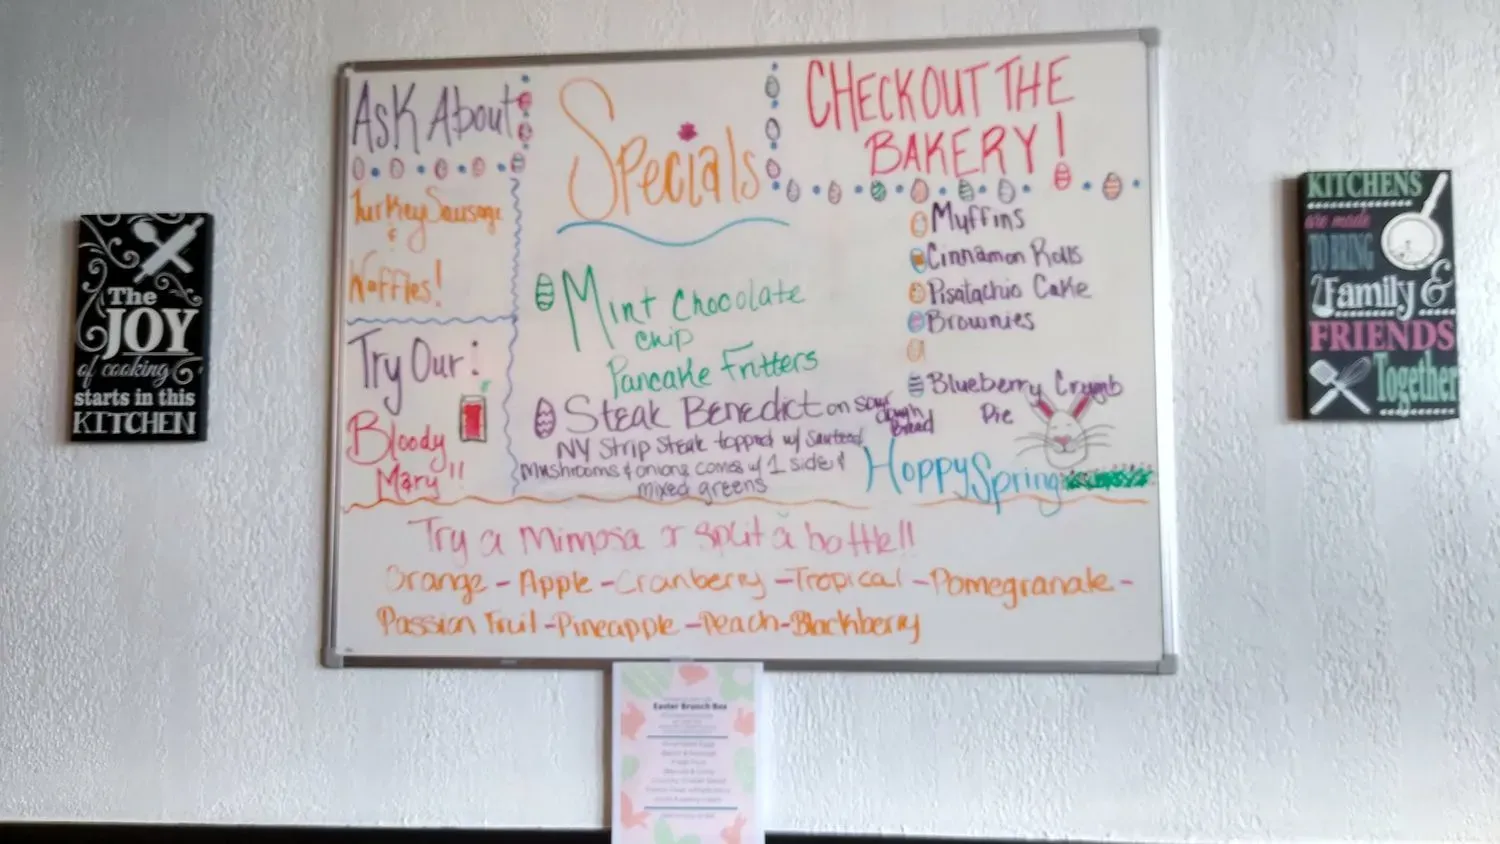 The
JOY
of cooking
starts in this
KITCHEN
Ask About
Turkey Sausage
&
Waffles!
Try Our:
Bloody
Mary!!
Specials
Mint Chocolate
chip
Pancake Fritters
Steak Benedict on sour
dough
bread
NY Strip Steak topped w/ Sauteed
mushrooms & onions comes w/ 1 side &
mixed greens
CHECKOUT THE
BAKERY!
Muffins
Cinnamon Rolls
Pisatachio Cake
Brownies
Blueberry Crumb
Pie
Hoppy Spring
Try a Mimosa or split a bottle!!
Orange - Apple - Cranberry - Tropical - Pomegranate -
Passion Fruit - Pineapple - Peach - Blackberry
Easter Brunch Box
KITCHENS
are made
TO BRING
Family &
FRIENDS
Together